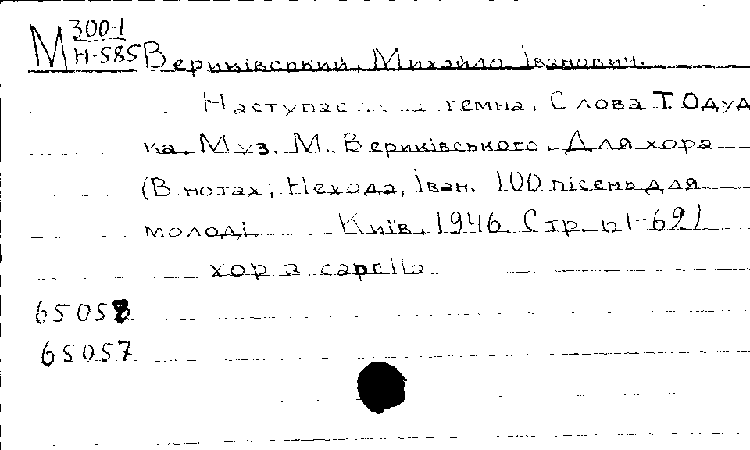 М 300-1
Н-585
Вериківський, Михайло Іванович.
Наступає ... темна. Слова Т. Одуд
ка. Муз. М. Вериківського. Для хора
(В нотах: Нехода, Іван. 100 пісень для
молоді. Київ, 1946. Стр. 61-69)
хор a capella
65058
65057